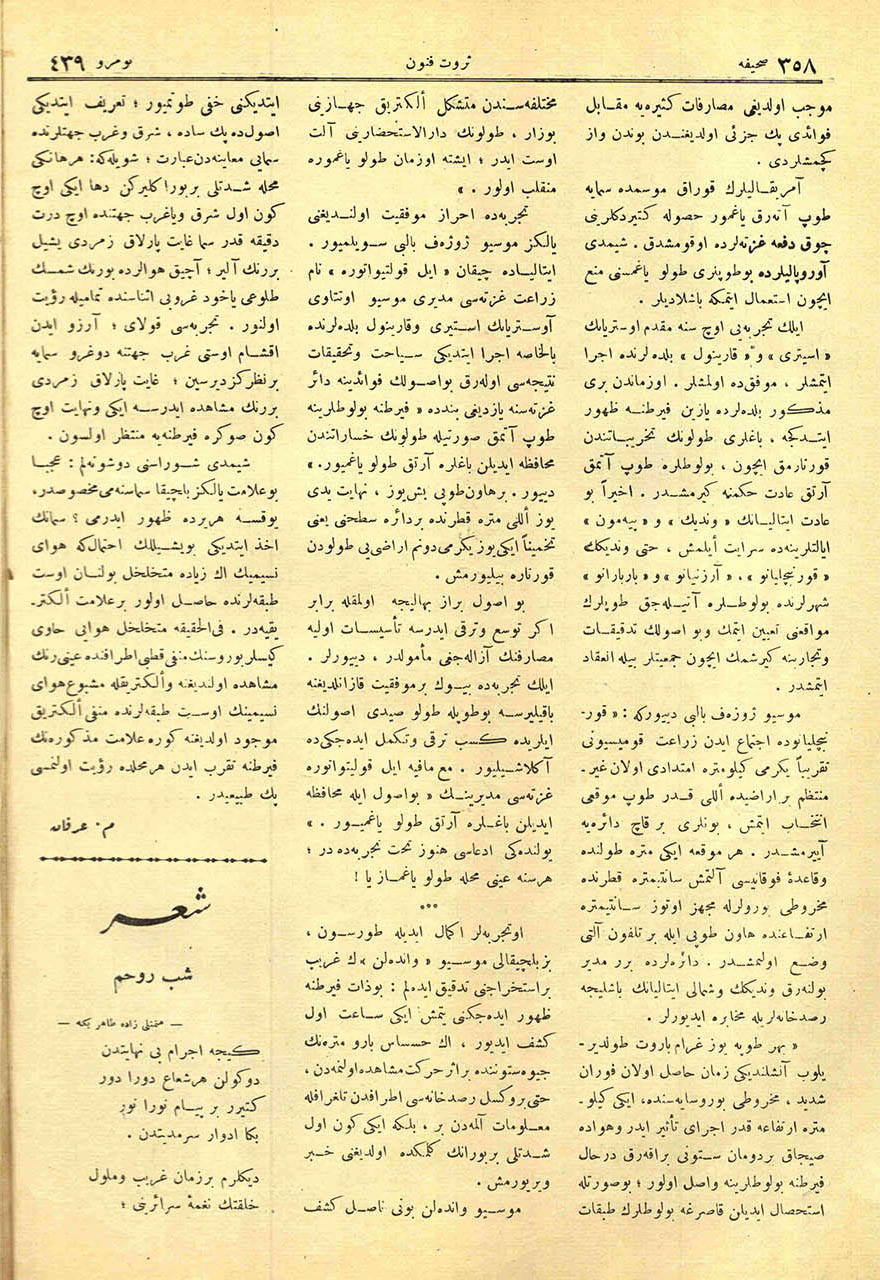 صحیفه ٣٥٨
ثروت فنون
نومرو ٤٣٩
موجب اولدیغی مصارفات كثیره‌یه مقابل
فوائدی پك جزئی اولدیغندن بوندن واز
كچمشلردی .
آمریقالیلرك قوراق موسمده سمایه
طوپ آته‌رق یاغمور حصوله كتیردكلرینی
چوق دفعه غزته‌لرده اوقومشدق . شیمدی
آوروپالیلرده بوطوپلری طولو یاغمسنی منع
ایچون استعمال ایتمكه باشلادیلر .
ایلك تجربه‌یی اوچ سنه مقدم اوستریانك
« استری » و « قارینول » بلده لرنده اجرا
ایتمشلر ، موفق‌ده اولمشلر . اوزماندن بری
مذكور بلده‌لرده یازین فیرطنه ظهور
ایتدكجه ، باغلری طولونك تخریباتندن
قورتارمق ایچون ، بولوطلره طوپ آتمق
آرتق عادت حكمنه كیرمشدر . اخیراً بو
عادت ایتالیانك « وندیك » و « پیه‌مون »
ایالتلرینه‌ده سرایت ایلمش ، حتی وندیكك
« قورنیجلیانو » ، « آرزنیانو » و « باربارانو »
شهرلرنده بولوطلره آتیله‌جق طوپلرك
مواقعنی تعیین ایتمك وبو اصولك تدقیقات
وتجاربنه كیرشمك ایچون جمعیتلر بیله انعقاد
ایتمشدر .
موسیو ژوزه‌ف بالبی دییوركه : « قور-
نیجلیانوده اجتماع ایدن زراعت قومیسیونی
تقریباً یكرمی كیلومتره امتدادی اولان غیر-
منتظم براراضیده اللی قدر طوپ موقعی
انتخاب ایتمش ، بونلری برقاچ دائره‌یه
آییرمشدر . هر موقعه ایكی متره طولنده
وقاعدهٔ فوقانیسی آلتمش سانتیمتره قطرنده
مخروطی بورولرله مجهز اوتوز سانتیمتره
ارتفاعنده هاون طوپی ایله بر تلفون آلتی
وضع اولنمشدر . دائره‌لرده برر مدیر
بولنه‌رق وندیكك وشمالی ایتالیانك باشلیجه
رصدخانه‌لریله مخابره ایدیورلر .
« بهر طوپه یوز غرام باروت طولدیر-
یلوب آتشلندیكی زمان حاصل اولان فوران
شدید ، مخروطی بوروسایه‌سنده ، ایكی كیلو-
متره ارتفاعه قدر اجرای تأثیر ایدر وهواده
صیجاق بردومان ستونی براقه‌رق درحال
فیرطنه بولوطلرینه واصل اولور ؛ بوصورتله
استحصال ایدیلن قاصرغه بولوطلرك طبقات
مختلفه‌سندن متشكل ألكتریق جهازینی
بوزار ، طولونك دارالاستحضارینی آلت
اوست ایدر ؛ ایشته اوزمان طولو یاغموره
منقلب اولور . »
تجربه‌ده احراز موفقیت اولندیغنی
یالكز موسیو ژوزه‌ف بالبی سویلمیور .
ایتالیاده چیقان « ایل قولتیواتوره » نام
زراعت غزته‌سی مدیری موسیو اوتتاوی
آوستریانك استیری وقارینول بلده‌لرنده
بالخاصه اجرا ایتدیكی سیاحت وتحقیقات
نتیجه‌سی اوله‌رق بواصولك فوائدینه دائر
غزته‌سنه یازدیغی بندده « فیرطنه بولوطلرینه
طوپ آتمق صورتیله طولونك خساراتندن
محافظه ایدیلن باغلره آرتق طولو یاغمیور. »
دییور . برهاون‌طوپی بش‌یوز ، نهایت یدی
یوز أللی متره قطرنده بردائره سطحنی یعنی
تخمیناً ایكی‌یوز یكرمی‌دونم اراضی‌یی طولودن
قورتاره بیلیورمش .
بو اصول براز بهالیجه اولمقله برابر
اكر توسع وترقی ایدرسه تأسیسات اولیه
مصارفنك آزاله‌جغی مأمولدر ، دییورلر .
ایلك تجربه‌ده بیوك برموفقیت قازانلدیغنه
باقیلیرسه بوطوپله طولو صیدی اصولنك
ایلریده كسب ترقی وتكمل ایده‌جكی‌ده
آكلاشیلیور . مع‌مافیه ایل قولیتواتوره
غزته‌سی مدیرینك « بواصول ایله محافظه
ایدیلن باغلره آرتق طولو یاغمیور . »
یولنده‌كی ادعاسی هنوز تحت تجربه‌ده‌در ؛
هرسنه عینی محله طولو یاغماز یا !
***
اوتجربه‌لر اكمال ایدیله طورسون ،
بزبلچیقالی موسیو « وانده‌لن »ك غریب
براستخراجنی تدقیق ایده‌لم : بوذات فیرطنه
ظهور ایده‌جكنی یتمش ایكی ساعت اول
كشف ایدیور ، اك حساس بارو متره‌نك
جیوه‌ستوننده براثر حركت مشاهده اولنمه‌دن،
حتی بروكسل رصدخانه‌سی اطرافدن تلغرافله
معلومات آلمه‌دن بر ، بلكه ایكی كون اول
شدتلی بربورانك كلمكده اولدیغنی خبر
ویریورمش .
موسیو وانده‌لن بونی ناصل كشف
ایتدیكنی خفی طوتمیور ؛ تعریف ایتدیكی
اصول‌ده پك ساده ، شرق وغرب جهتلرنده
سمایی معاینه‌دن عبارت ؛ شویله‌كه : هرهانكی
محله شدتلی بربورا كلیركن دها ایكی اوچ
كون اول شرق ویاغرب جهتنده اوچ درت
دقیقه قدر سما غایت پارلاق زمردی یشیل
بررنك آلیر ؛ آچیق هوالرده بورنك شمسك
طلوعی یاخود غروبی اثناسنده تمامیله رؤیت
اولنور . تجربه‌سی قولای ؛ آرزو ایدن
اقشام اوستی غرب جهتنه دوغرو سمایه
برنظركزدیرسین ؛ غایت پارلاق زمردی
بررنك مشاهده ایدرسه ایكی ونهایت اوچ
كون صوكره فیرطنه‌یه منتظر اولسون .
شیمدی شوراسنی دوشونه‌لم : عجبا
بوعلامت یالكز بلچیقا سماسنه‌می مخصوصدر،
یوقسه هریرده ظهور ایدرمی ؟ سمانك
اخذ ایتدیكی بویشیللك احتمال‌كه هوای
نسیمینك اك زیاده متخلخل بولنان اوست
طبقه‌لرنده حاصل اولور برعلامت ألكتر-
یقیه‌در . فی‌الحقیقه متخلخل هوایی حاوی
كیسلر بوروسنك منفی قطبی اطرافنده عینی رنك
مشاهده اولندیغنه وألكتریقله مشبوع هوای
نسیمینك اوست طبقه‌لرنده منفی ألكتریق
موجود اولدیغنه كوره علامت مذكوره‌نك
فیرطنه تقرب ایدن هرمحلده رؤیت اولنمسی
پك طبیعیدر .
م . عرفان
شعر
شب روحم
— طاهر بكه —
كیجه اجرام بی نهایتدن
دوكولن هرشعاع دورا دور
كتیرر بر پیام نورا نور
بكا ادوار سرمدیتدن .
دیكلرم برزمان غریب وملول
خلقتك نغمهٔ سرائرینی ؛